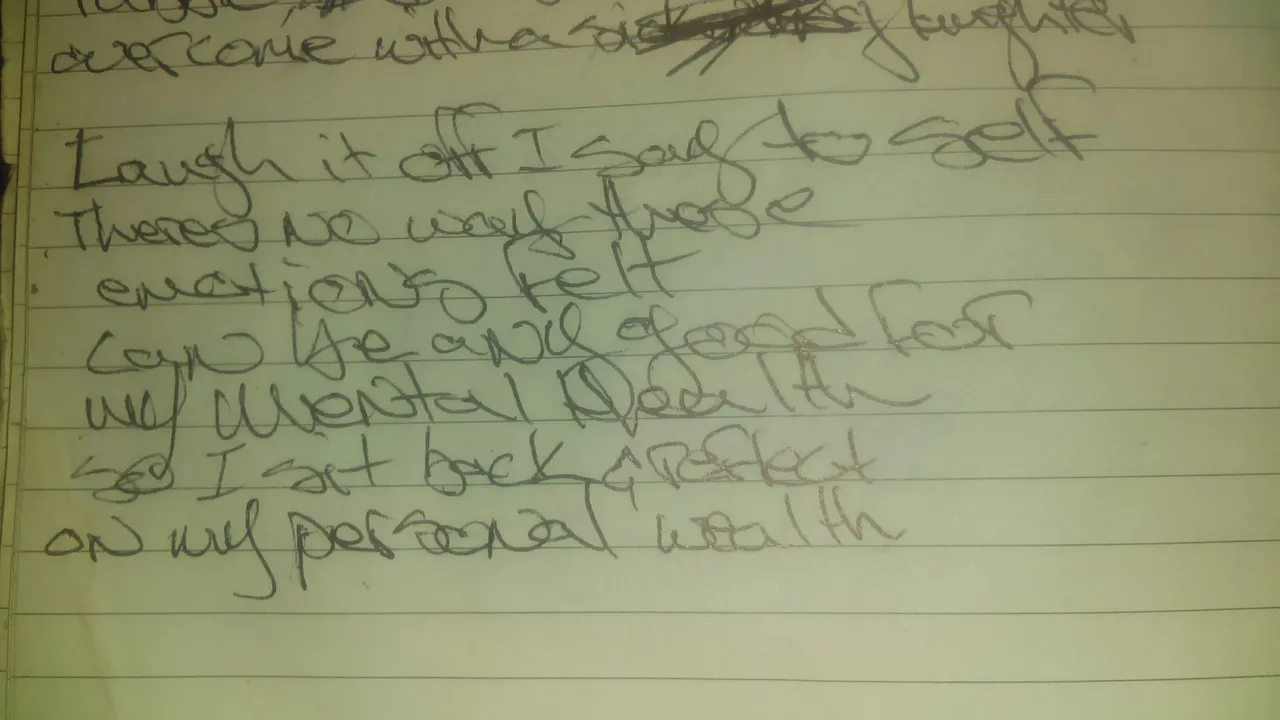 overcome with a laughter
Laugh it off I say to self
Theres no way those
emotions felt
can be any good for
my mental Health
so I sit back & reflect
on my personal wealth